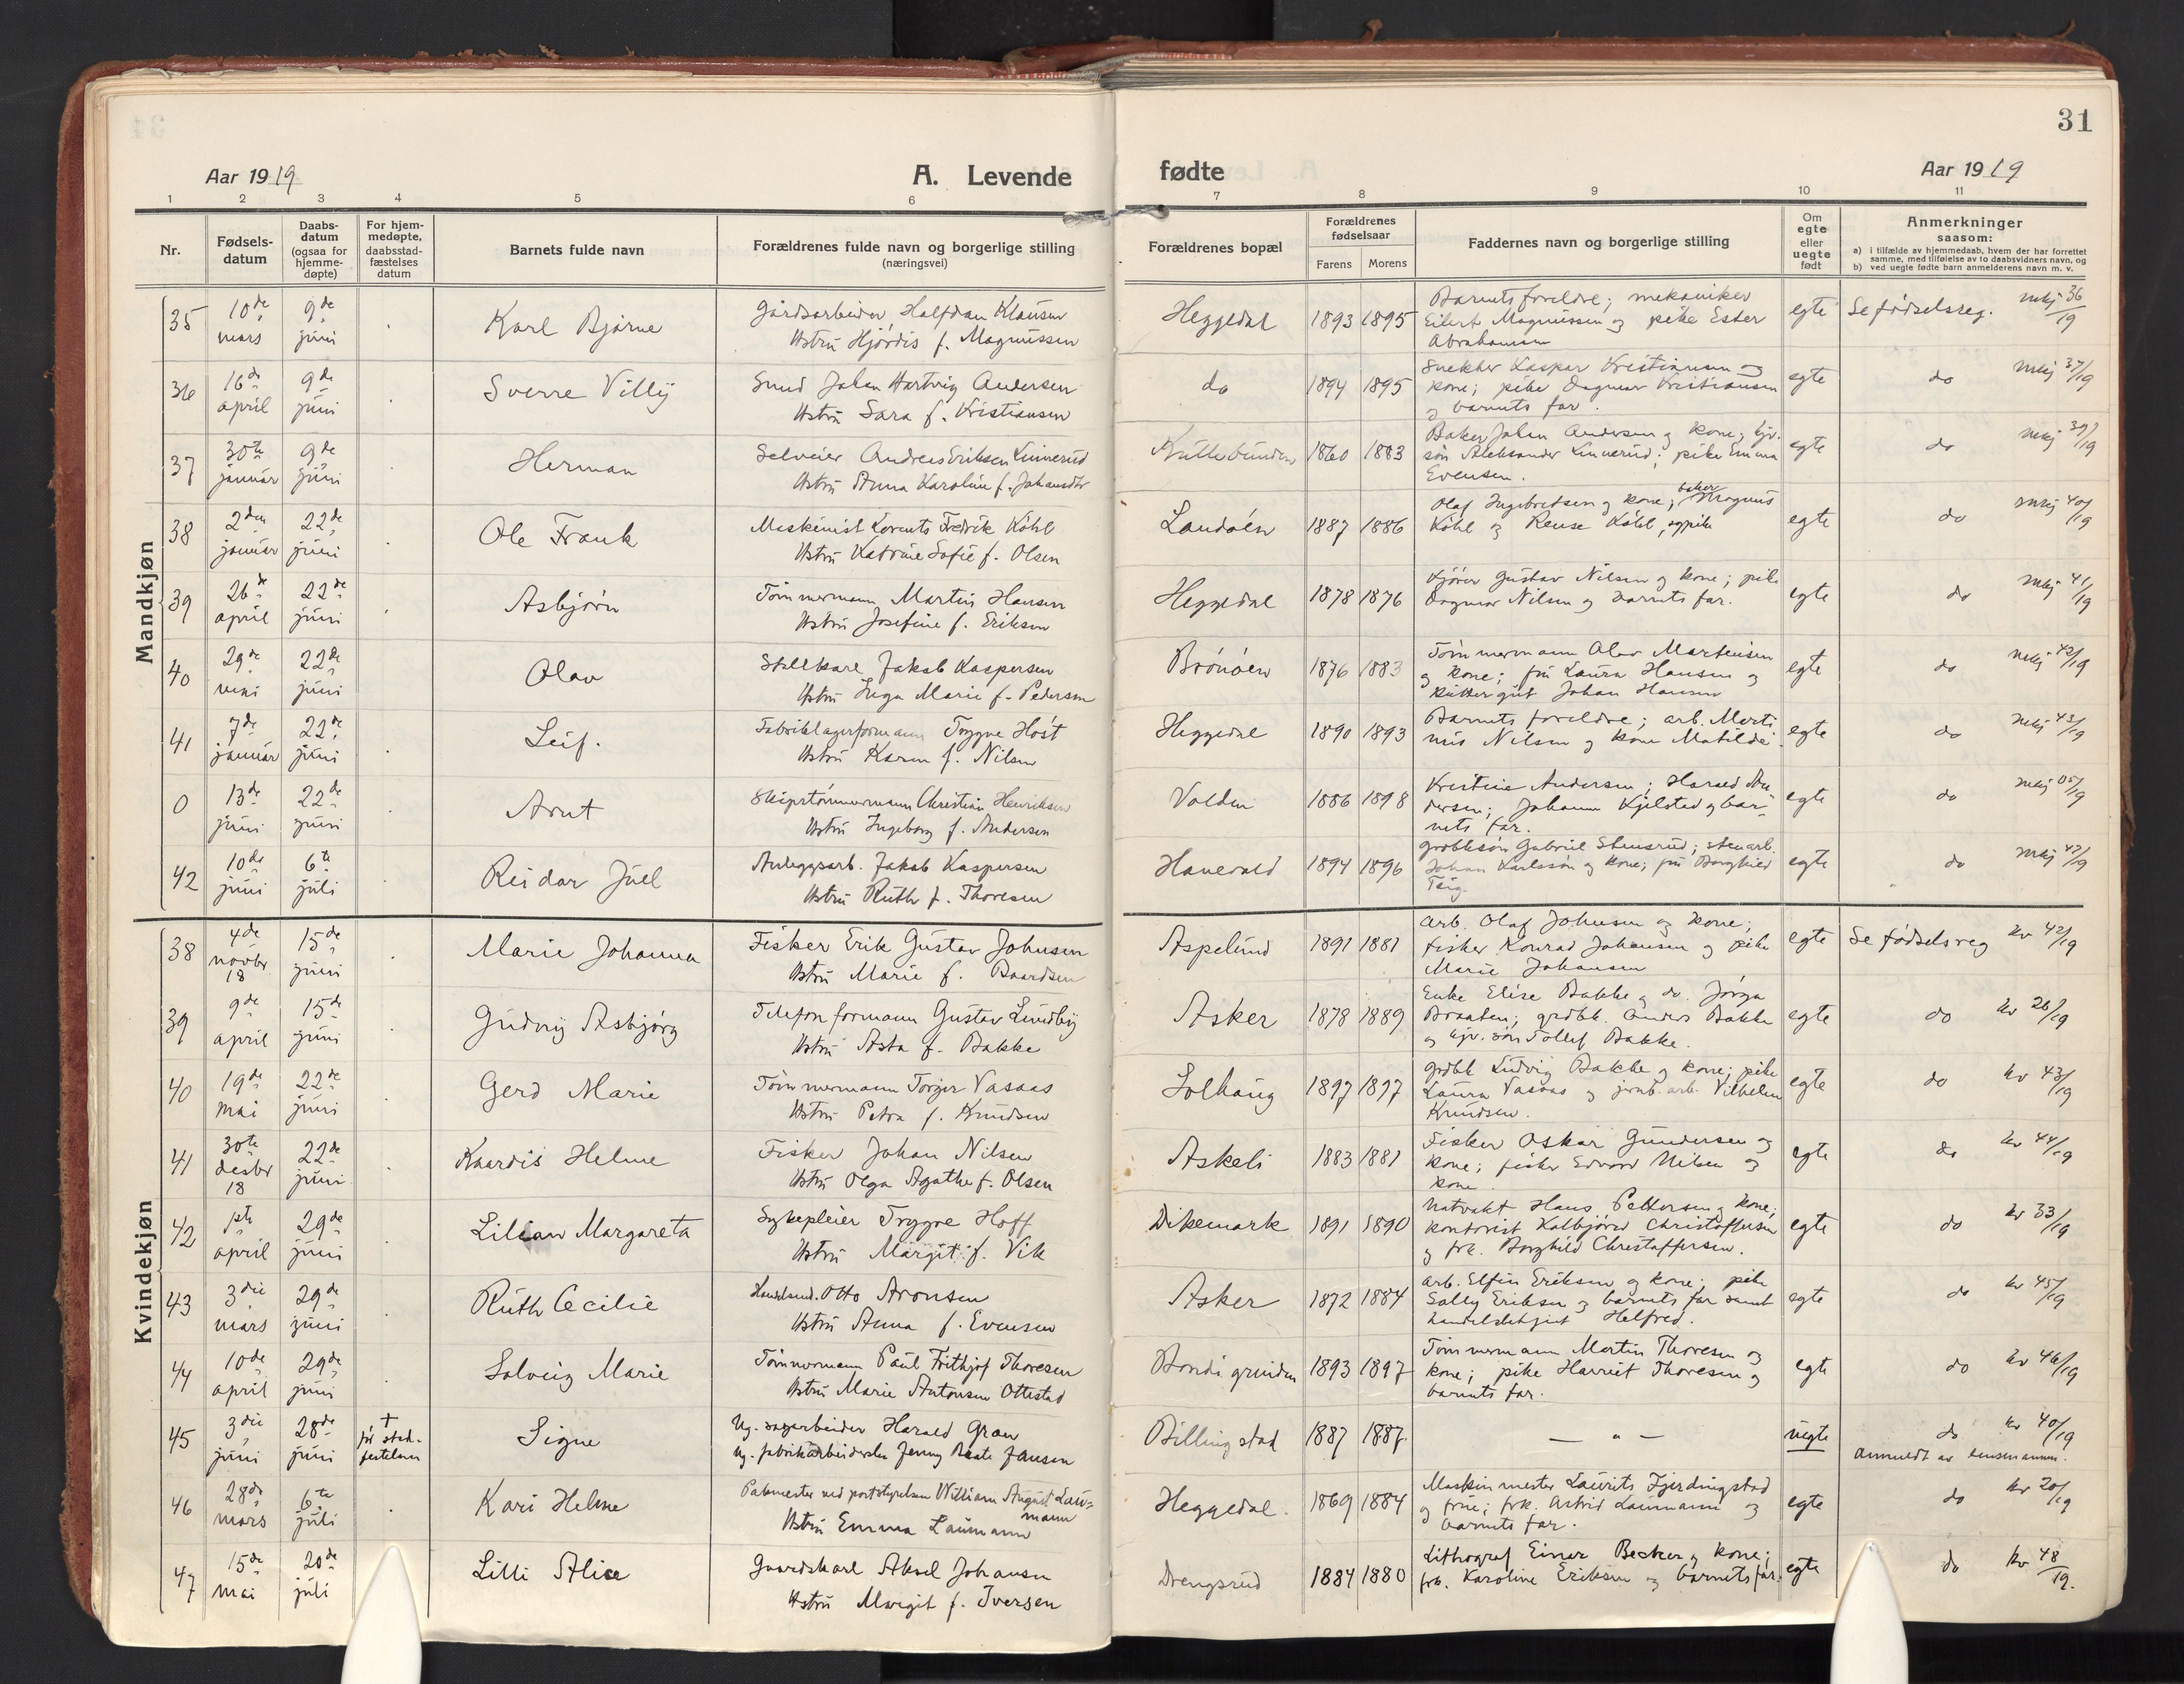 31
Aar 1919
A. Levende fødte
Aar 1919
1 2 3 4 5 6 7 8 9 10 11
Nr.
Fødsels-datum
Daabs-datum (ogsaa for hjemme-døpte)
For hjem-medøpte, daabsstad-fæstelses datum
Barnets fulde navn
Forældrenes fulde navn og borgerlige stilling (næringsvei)
Forældrenes bopæl
Forældrenes fødselsaar
Farens Morens
Faddernes navn og borgerlige stilling
Om egte eller uegte født
Anmerkninger saasom:
a) i tilfælde av hjemmedaab, hvem der har forrettet samme, med tilføielse av to daabsvidners navn, og
b) ved uegte fødte barn anmelderens navn m. v.
Mandkjøn
35 10de mars 9de juni Karl Bjarne Gårdsarbeider Halfdan Klausen Hstru Hjördis f. Magnussen Heggedal 1893 1895 Barnets foreldre; mekaniker Eilert Magnussen og pike Ester Abrahamsen egte Se fødselsreg. mkj 36/19
36 16de april 9de juni Sverre Villy Smed Johan Hartvig Andersen Hstru Sara f. Kristiansen do 1894 1895 Snekker Kaspar Kristiansen og kone; pike Dagmar Kristiansen og barnets far. egte do mkj 37/19
37 30te januar 9de juni Herman Selveier Andreas Eriksen Linnerud Hstru Anna Karoline f. Johansdtr 1860 1883 Baker Johan Andersen og kone; gjv. søn Aleksander Linnerud; pike Emma Evensen. egte do mkj 39/19
38 2den januar 22de juni Ole Frank Maskinist Lorents Fredrik Köhl Hstru Katrine Sofie f. Olsen Landøen 1887 1886 Olaf Ingebretsen og kone; baker Magnus Köhl og Köhl, egte do mkj 40/19
39 26de april 22de juni Asbjørn Tømmermann Martin Hansen Hstru Josefine f. Eriksen Heggedal 1878 1876 Kjører Gustav Nilsen og kone; pike Dagmar Nilsen og barnets far. egte do mkj 41/19
40 29de mai 22de juni Olav Stallkarl Jakob Kaspersen Hstru Inga Marie f. Pedersen Brønøen 1876 1883 Tømmermann Olav Martinsen og kone; fru Laura Hansen og Johan Hansen egte do mkj 42/19
41 7de januar 22de juni Leif. Fabriklagerformann Trygve Høst Hstru Karen f. Nilsen Heggedal 1890 1893 Barnets foreldre; arb. Martinus Nilsen og kone Matilde egte do mkj 43/19
0 13de juni 22de juni Arnt Skipstømmermann Christian Henriksen Hstru Ingeborg f. Andersen Valden 1886 1898 Kristine Andersen; Harald Andersen; Johanne Kjelstad og barnets far. egte do mkj 05/19
42 10de juni 6te juli Reidar Juel Anleggsarb. Jakob Kaspersen Hstru Ruth f. Thoresen Hanevold 1894 1896 Gabriel Stensrud; stenarb. Johan Karlssön og kone; fru Borghild egte do mkj 47/19
Kvindekjøn
38 4de novbr 18 15de juni Marie Johanna Fisker Erik Gustav Johnsen Hstru Marie f. Baardsen Aspelund 1891 1881 arb. Olaf Johnsen og kone; fisker Konrad Johansen og pike Marie Johansen egte Se fødselsreg kv 42/19
39 9de april 15de juni Gudny Asbjørg Telefonformann Gustav Lundby Hstru Asta f. Bakke Asker 1878 1889 Enke Elise Bakke og do. Jørga Braaten; grdbr. Anders Bakke og gjv. søn Tollef Bakke. egte do kv 26/19
40 19de mai 22de juni Gerd Marie Tømmermann Torger Vasaas Hstru Petra f. Knudsen Solhaug 1897 1897 grdbr Ludvig Bakke og kone; pike Laura Vasaas og jernb.arb. Vilhelm Knudsen. egte do kv 43/19
41 30te desbr 18 22de juni Kaardis Helene Fisker Johan Nilsen Hstru Olga Agathe f. Olsen Askeli 1883 1881 Fisker Oskar Gundersen og kone; fisker Edvard Nilsen og kone egte do kv 44/19
42 1ste april 29de juni Lilian Margareta Sykepleier Trygve Hoff Hstru Margit f. Vik Dikemark 1891 1890 Natvakt Hans Pettersen og kone; kontorist Kolbjørn Christoffersen og frk. Borghild Christoffersen. egte do kv 33/19
43 3die mars 29de juni Ruth Cecilie Handelsmd. Otto Aronsen Hstru Anna f. Evensen Asker 1872 1884 arb. Elfin Eriksen og kone; pike Sally Eriksen og barnets far samt Helfred. egte do kv 45/19
44 10de april 29de juni Solveig Marie Tømmermann Paul Frithjof Thoresen Hstru Marie Antonsen Ottestad Bondi grunden 1893 1897 Tømmermann Martin Thoresen og kone; pike Harriet Thoresen og barnets far. egte do kv 46/19
45 3die juni 28de juni † før stad-festelsen Signe Ug. sagarbeider Harald Gran Ug. fabrikarbeiderske Jenny Beate Jansen Billingstad 1887 1887. — " — uegte do kv 40/19 Anmeldt av lensmannen.
46 28de mars 6te juli Kari Helene Pakmester ved poststyrelsen William August Laumann Hstru Emma Laumann Heggedal. 1869 1884 Maskinmester Laurits Fjerdingstad og frue; frk. Astrid Laumann og barnets far. egte do kv 20/19
47 15de mai 20de juli Lilli Alice Gaardskarl Aksel Johansen Hstru Margit f. Iversen Drengsrud 1884 1880 Lithograf Einar Becker og kone; frk. Karoline Eriksen og barnets far. egte do kv 48/19.